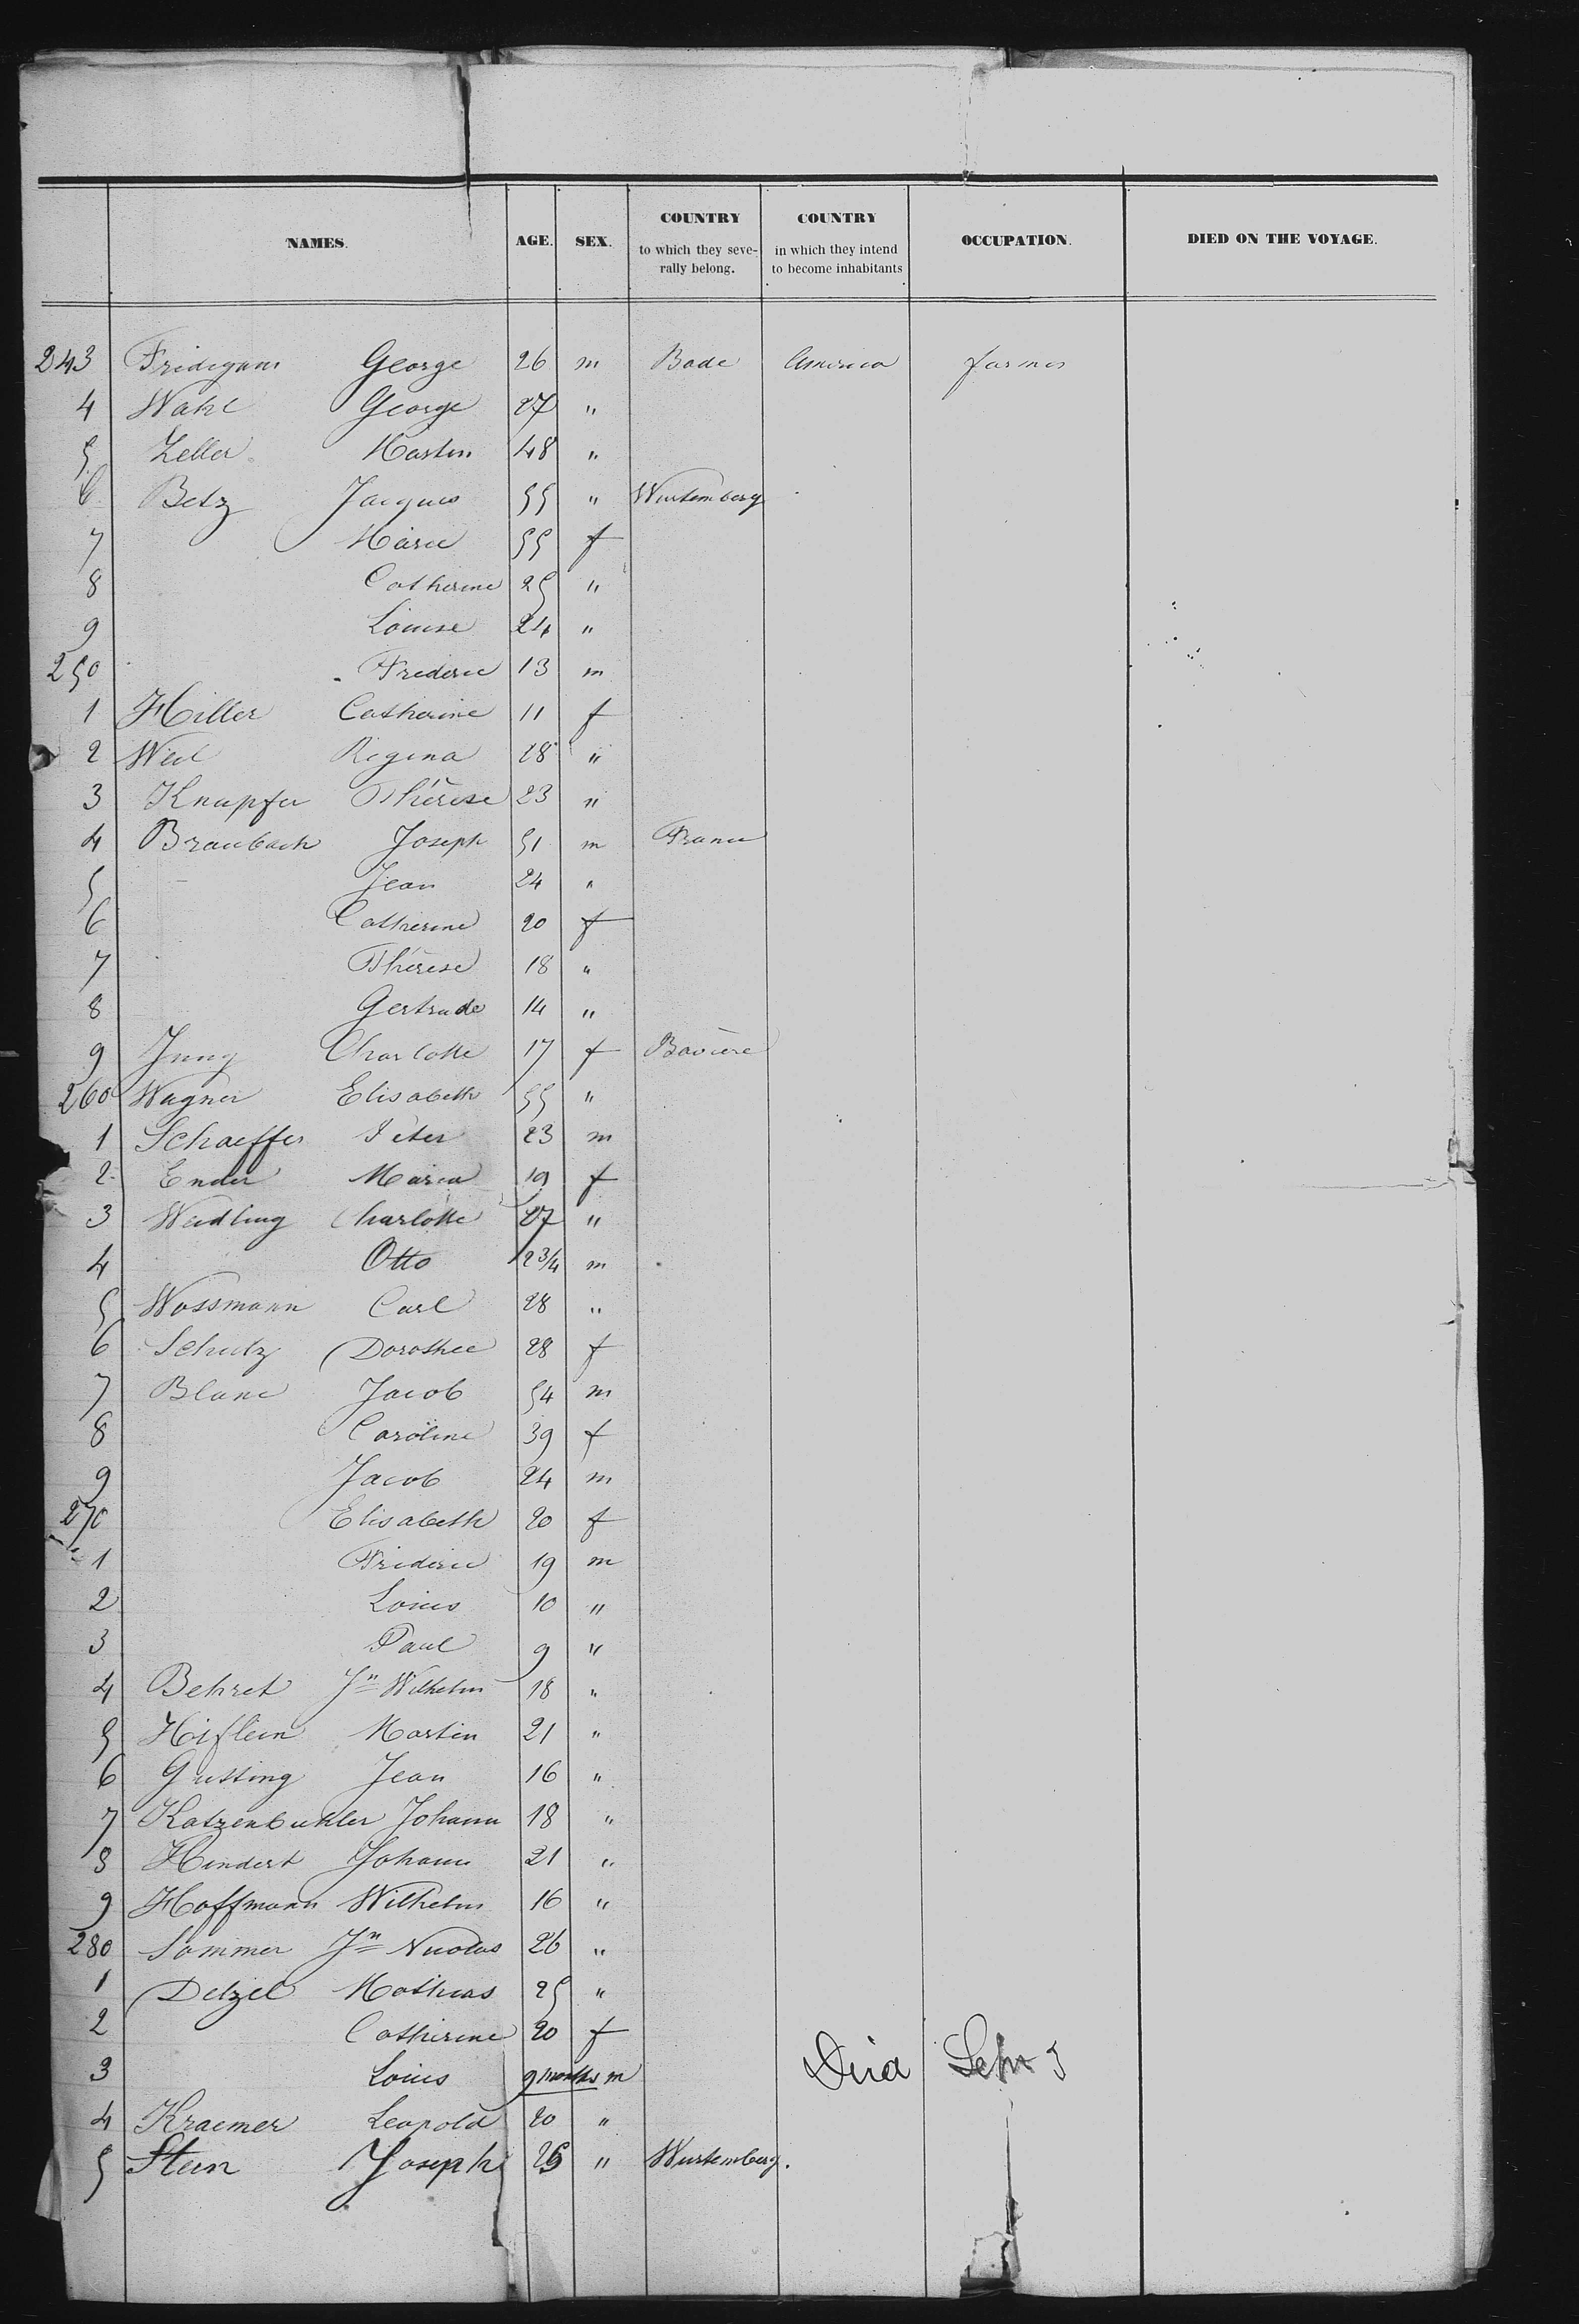 NAMES. AGE. SEX. COUNTRY to which they seve- rally belong. COUNTRY in which they intend to become inhabitants OCCUPATION. DIED ON THE VOYAGE.
243 Fridigans George 26 m Bade America farmer
4 Wahl George 27 "
5 Zeller Martin 48 "
6 Betz Jacques 55 " Wurtemberg
7 Marie 55 f
8 Catherine 25 "
9 Louise 24 "
250 Frederic 13 m
1 Hiller Catherine 11 f
2 Weil Regina 28 "
3 Knupfer Thérèse 23 "
4 Braubach Joseph 51 m France
5 Jean 24 "
6 Catherine 20 f
7 Thérèse 18 "
8 Gertrude 14 "
9 Jung Charlotte 17 f Bavière
260 Wagner Elisabeth 55 "
1 Schaeffer Peter 23 m
2 Ender Maria 19 f
3 Weidling Charlotte 27 "
4 Otto 2 3/4 m
5 Wossmann Carl 28 "
6 Schutz Dorothee 28 f
7 Blanc Jacob 54 m
8 Caroline 39 f
9 Jacob 24 m
270 Elisabeth 20 f
1 Frideric 19 m
2 Louis 10 "
3 Paul 9 "
4 Behret Jn Wilhelm 18 "
5 Hiflein Martin 21 "
6 Gutting Jean 16 "
7 Katzenbuhler Johann 18 "
8 Hindert Johann 21 "
9 Hoffmann Wilhelm 16 "
280 Sommer Jn Nicolas 26 "
1 Detzel Mathias 25 "
2 Catherine 20 f
3 Louis 9 months m Died 5
4 Kraemer Leopold 20 "
5 Stein Joseph 25 " Wurtemberg.